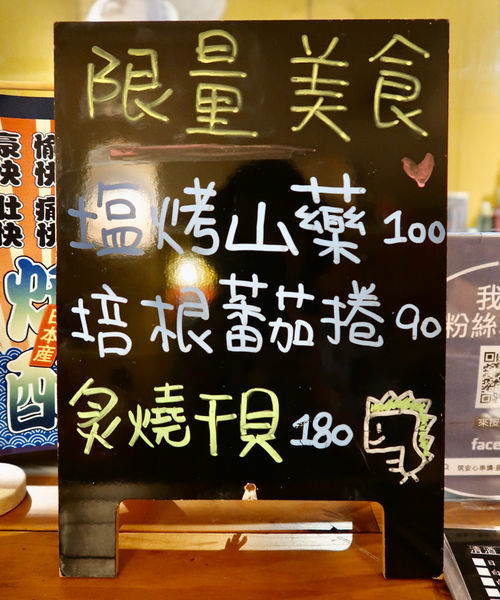 限量美食
塩烤山藥 100
培根蕃茄捲 90
炙燒干貝 180
愉快
痛快
日本産
我
粉絲
face
清酒